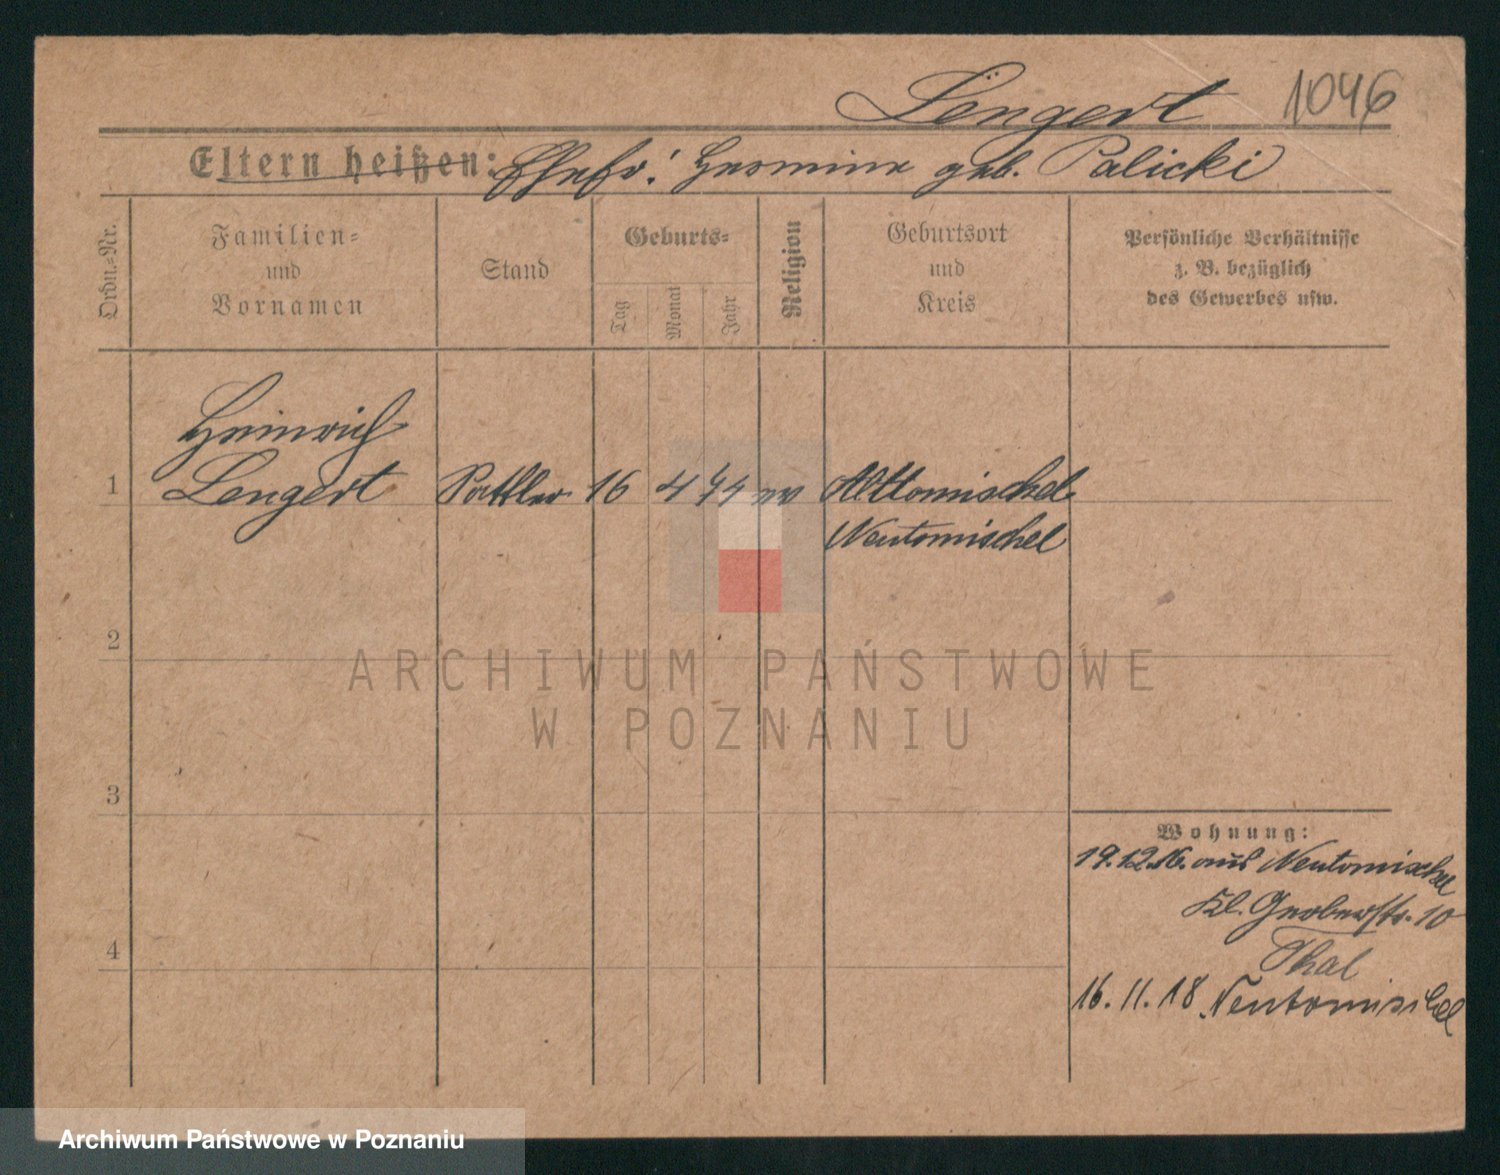 Lengert 1046
Eltern heißen: Ehefr: Hermine geb. Palicki
Ordn.-Nr.
Familien-
und
Vornamen
Stand
Geburts-
Tag
Monat
Jahr
Religion
Geburtsort
und
Kreis
Persönliche Verhältnisse
z. B. bezüglich
des Gewerbes usw.
Heinrich
1 Lengert Sattler 16 4 44 ev Alttomischel
Neutomischel
2
ARCHIWUM PAŃSTWOWE
W POZNANIU
3
Wohnung:
19.12.16. aus Neutomischel
Kl. Gerberstr. 10
4
Thal
16.11.18 Neutomischel
Archiwum Państwowe w Poznaniu